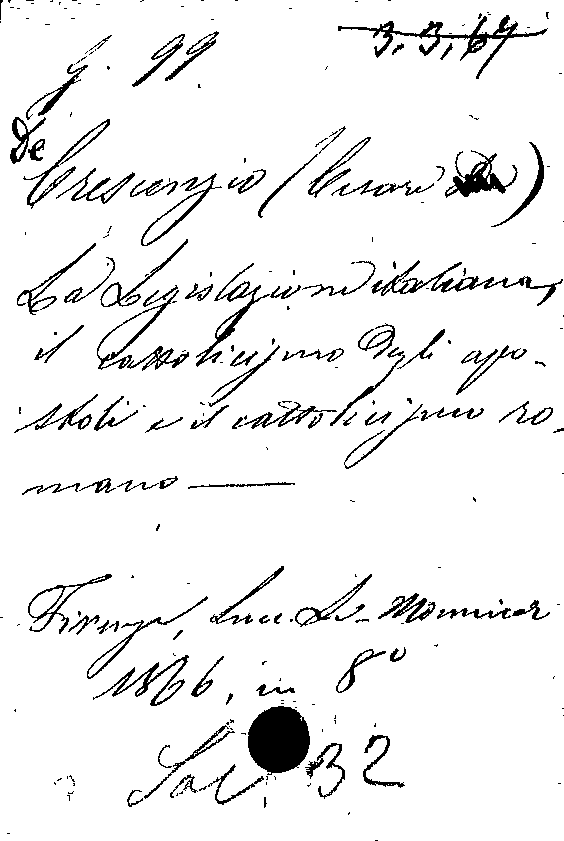 G. 99 3.3.67
De
Crescenzio (Cesare)
La Legislazione italiana,
il cattolicismo degli apo-
stoli e il cattolicismo ro-
mano
Firenze, Succ. Le-Monnier
1866, in 8º
32